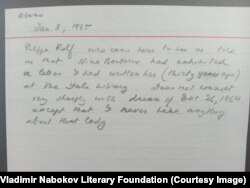 Jan 3, 1965
Filippa Rolf who came here to see us told
us that Nina Berberov had exhibited
a letter I had written her (thirty years ago)
at The State Library. Does not connect
very sharply with dream of Dec. 26, 1964
except that I never hear anything
about that lady
Vladimir Nabokov Literary Foundation (Courtesy Image)